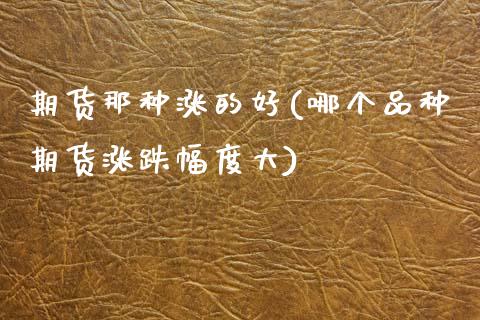 期货那种涨的好(哪个品种
期货涨跌幅度大)